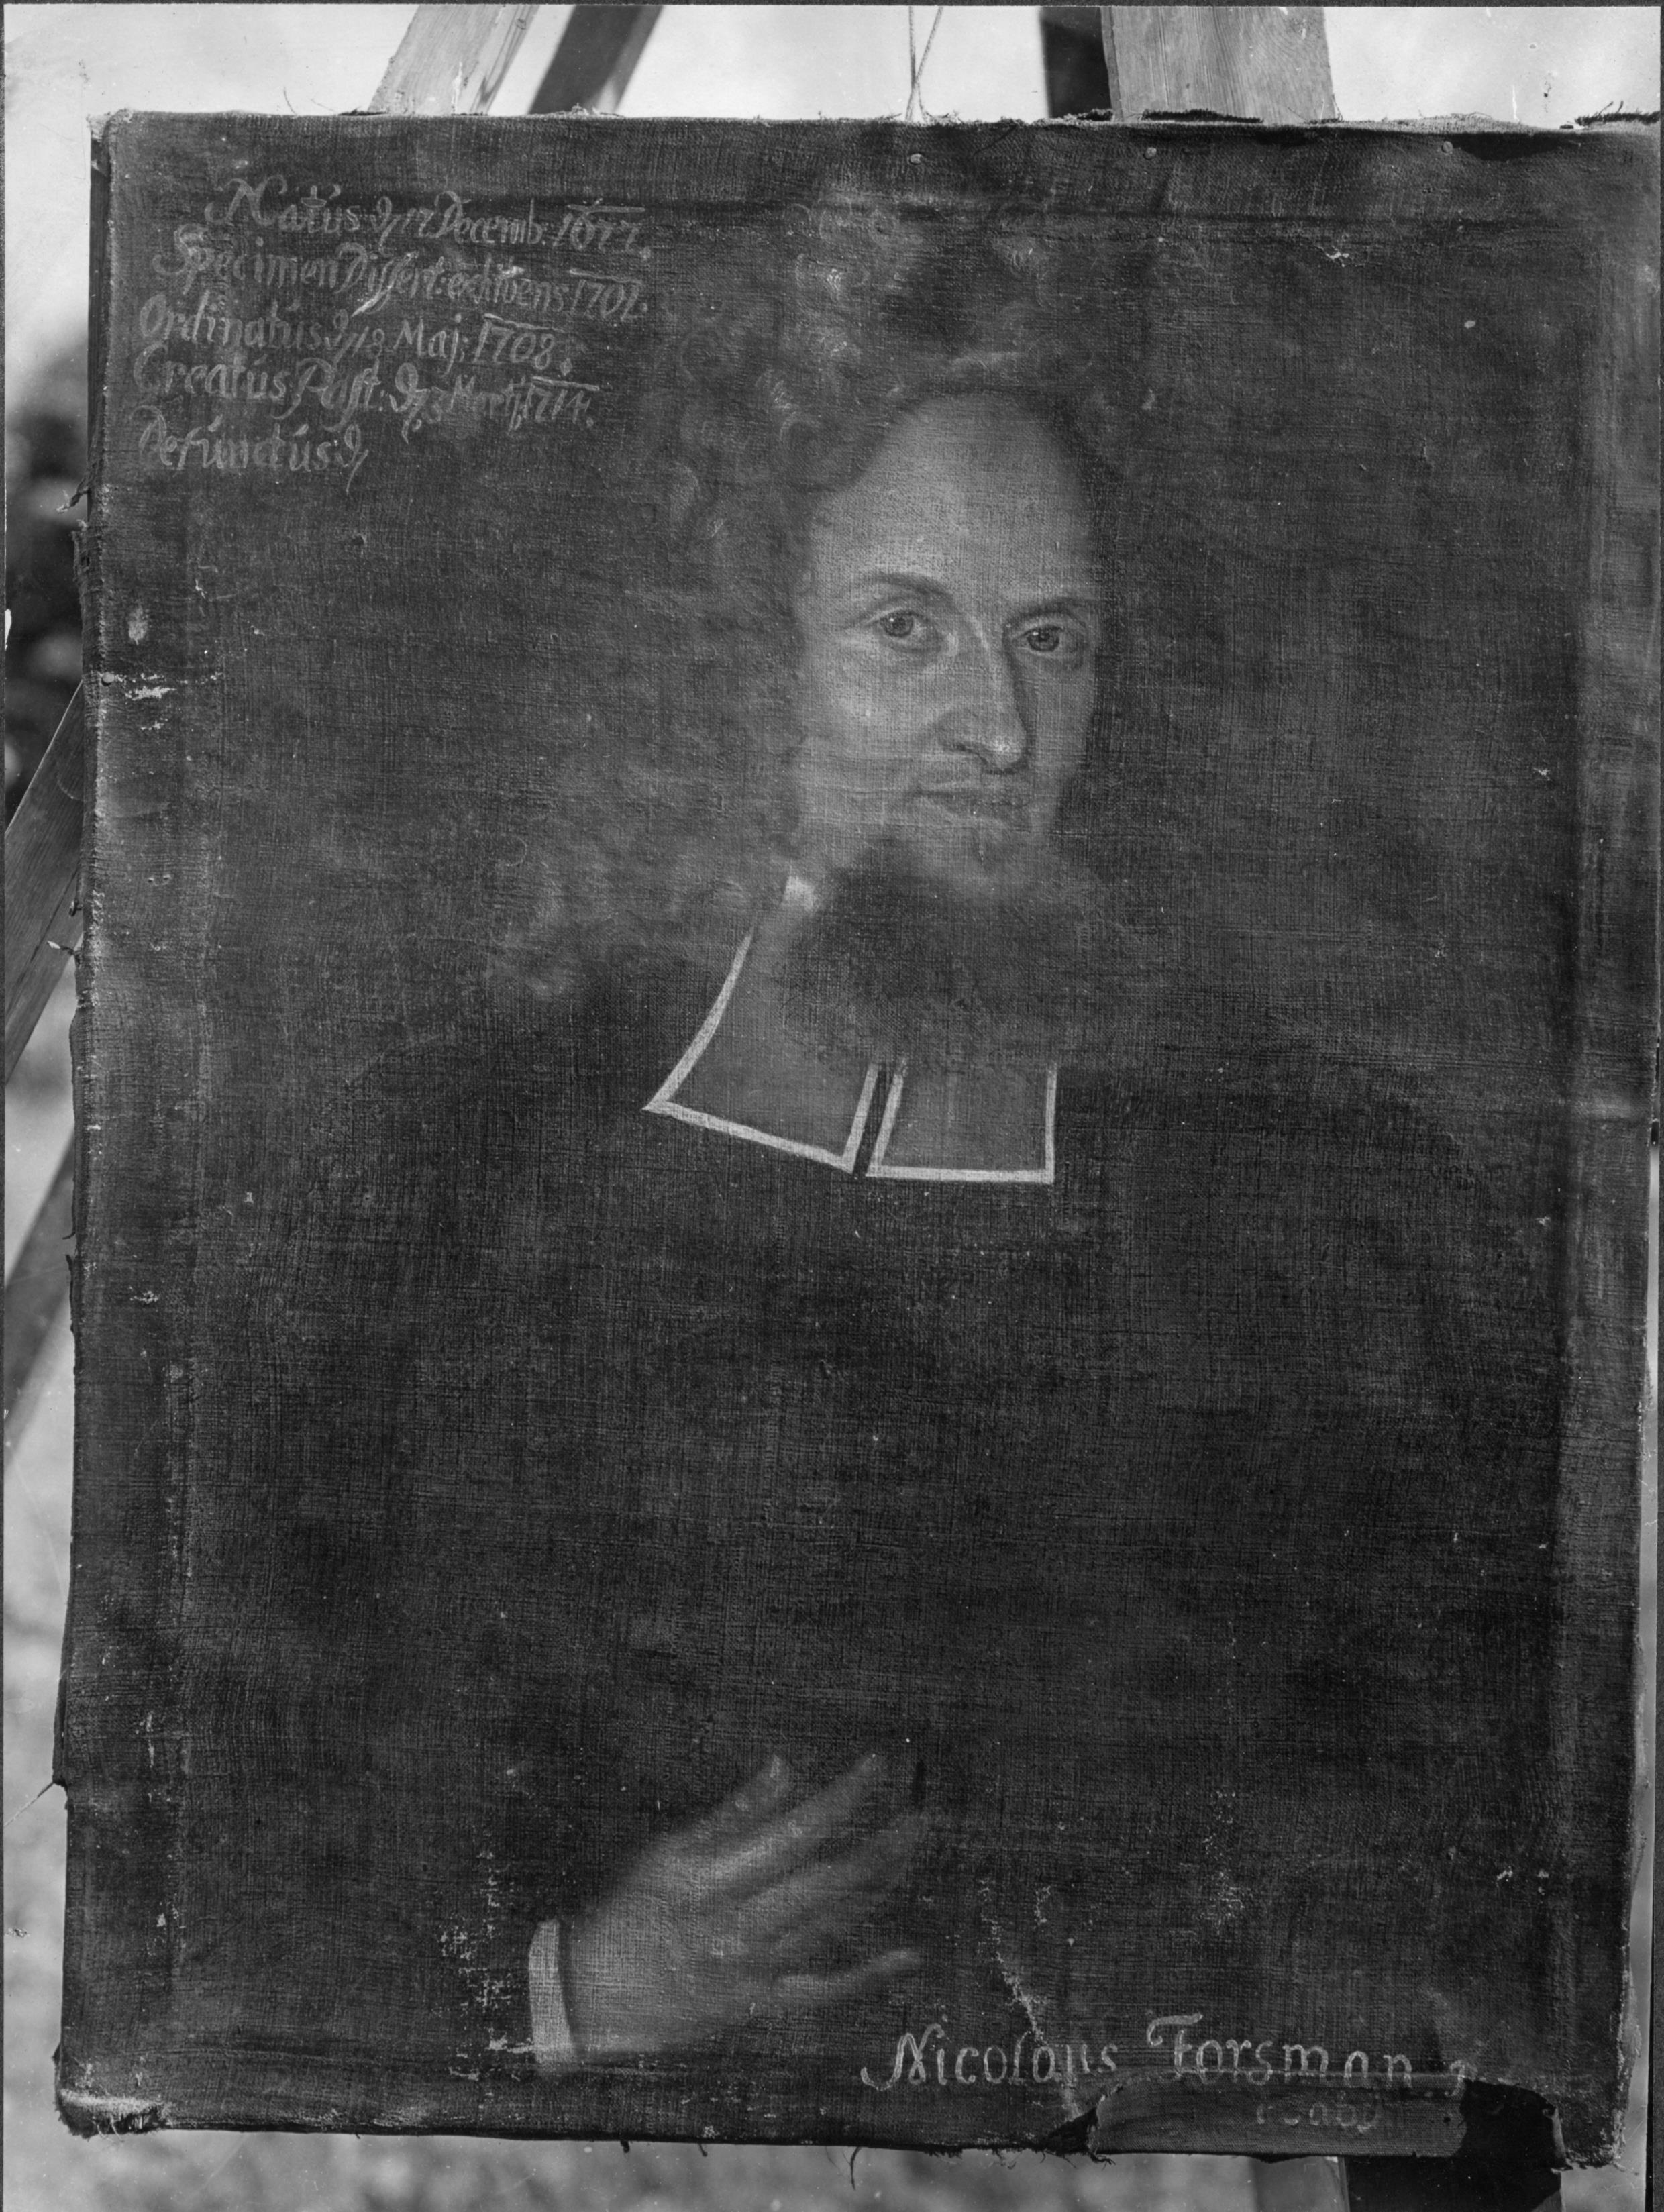 Natus d. 17 Decemb: 1677.
Specimen Dissert: edidens 1707.
Ordinatus d. 18 Maj: 1708.
Creatus Past. d. 3 Martij 1714.
Defunctus d.
Nicolaus Forsman